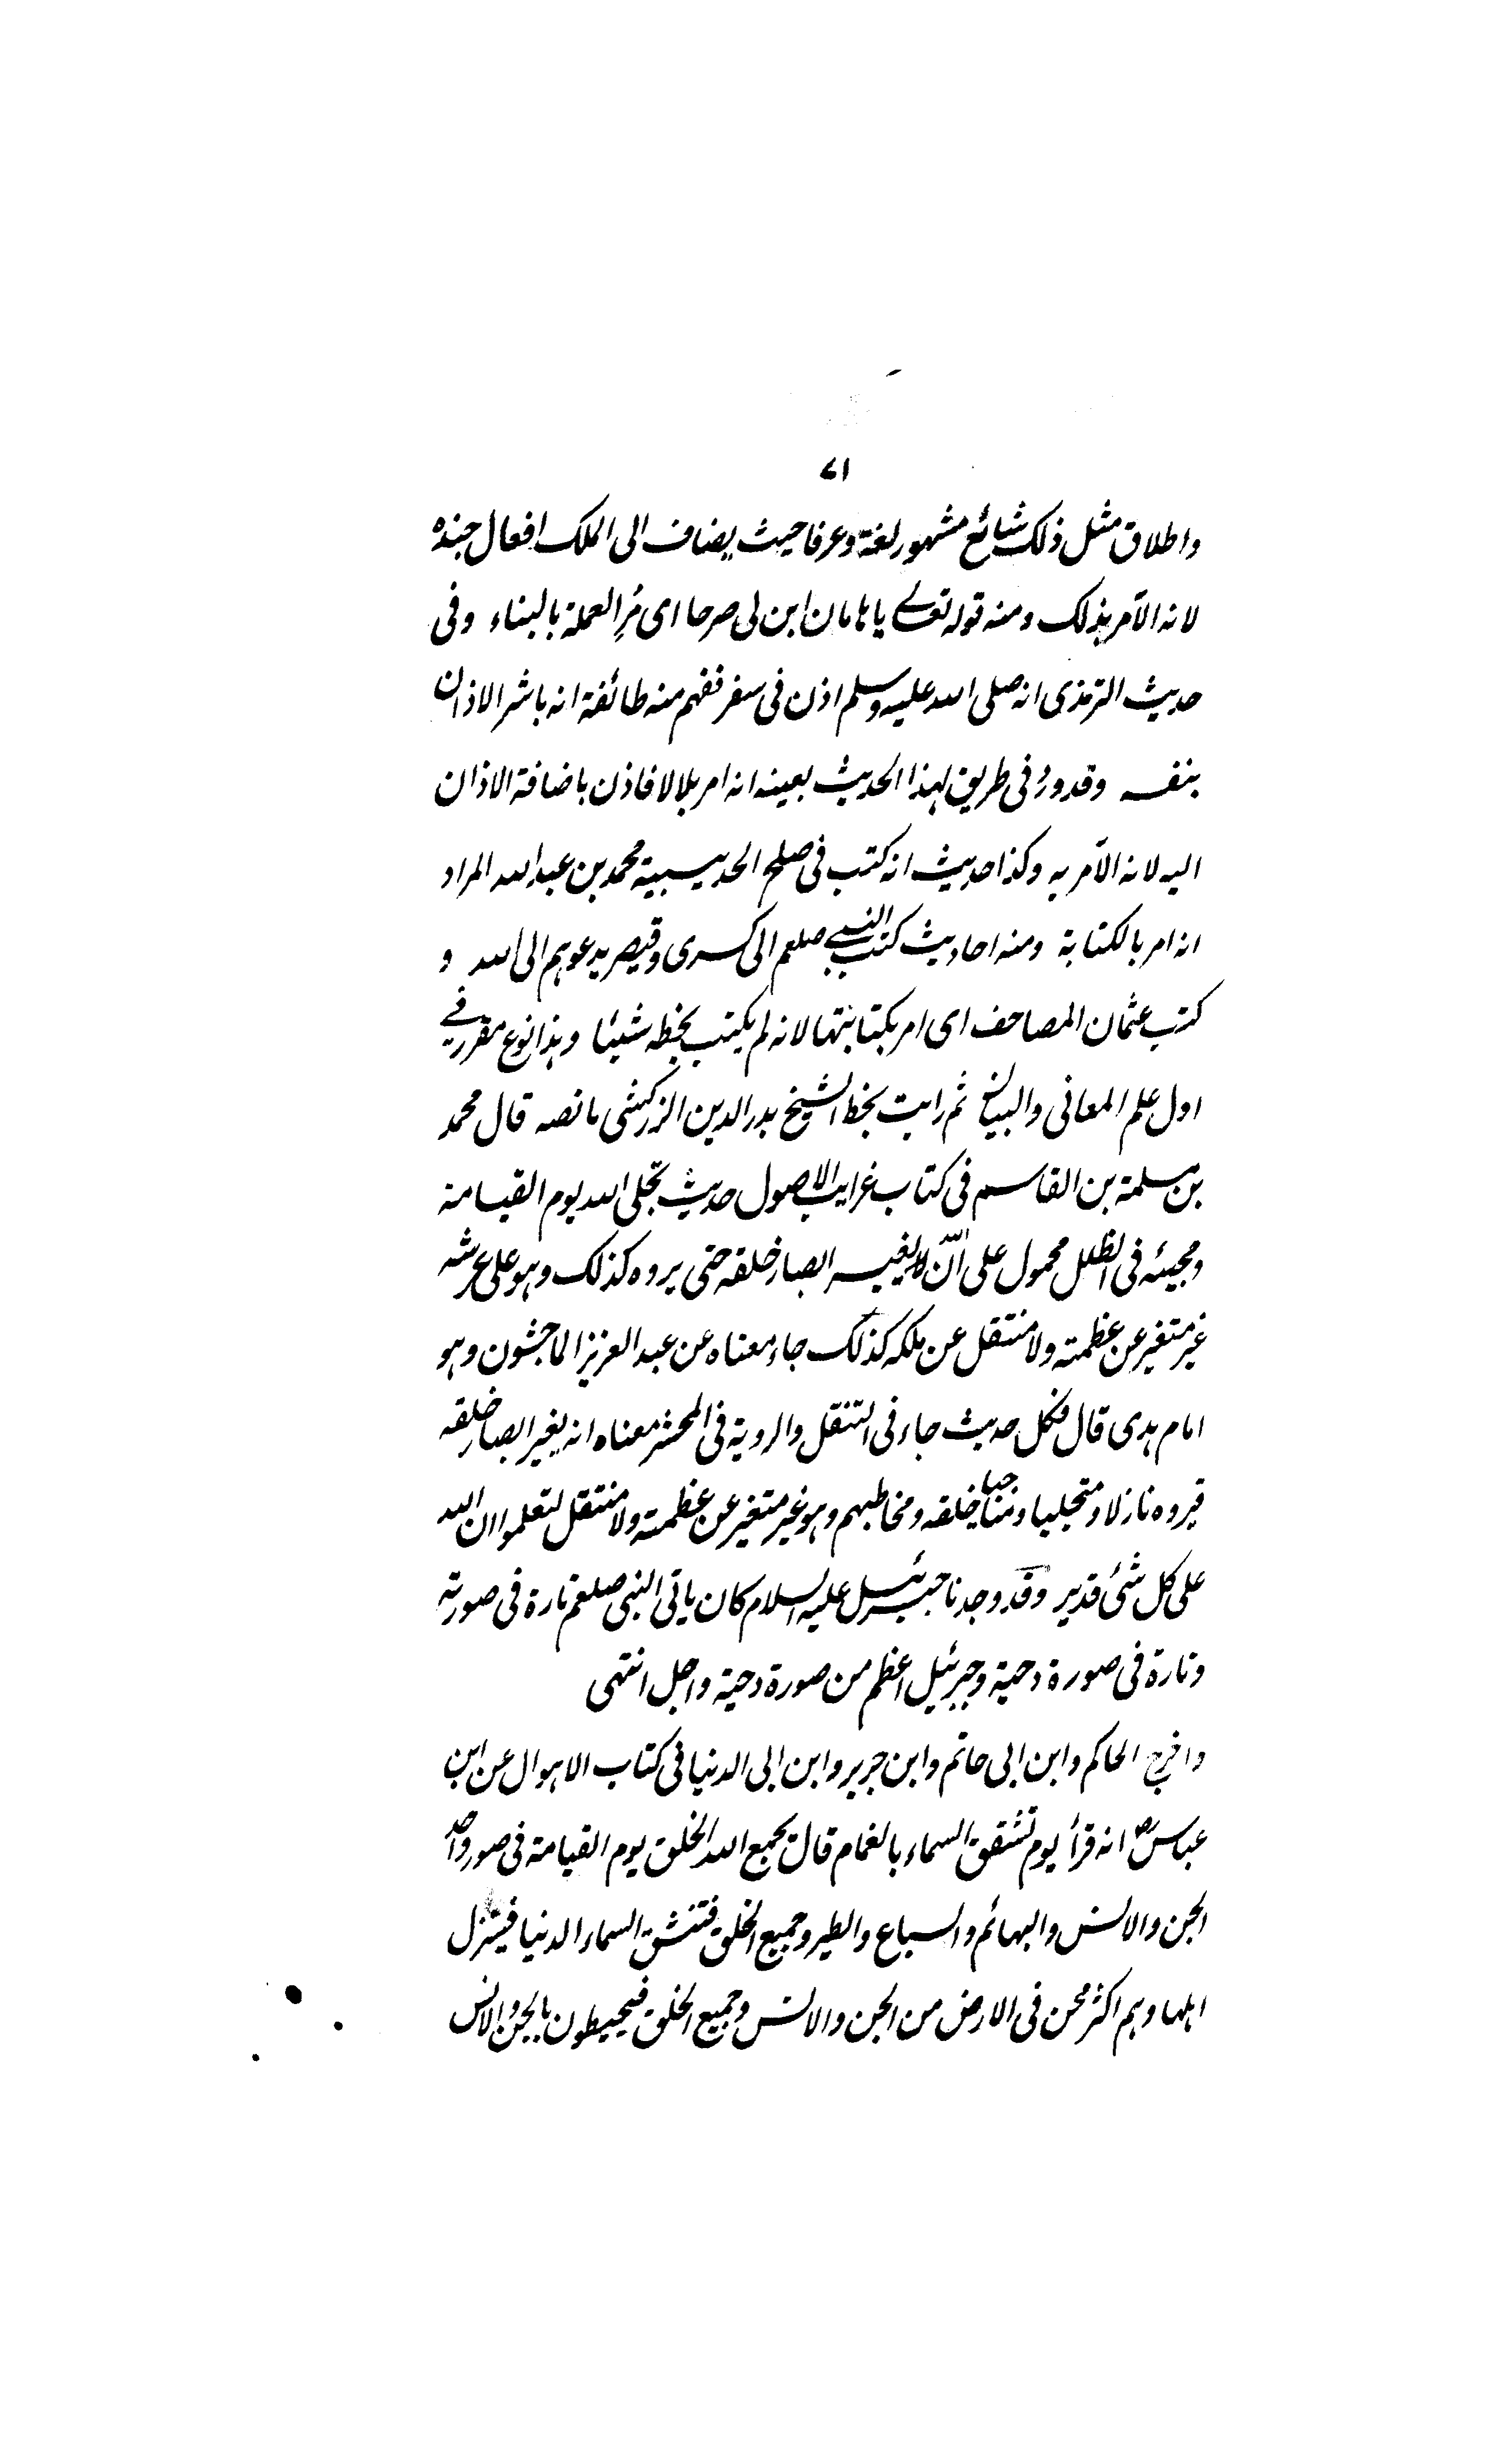 ٧١
واطلاق مثل ذلك شائع مشهور لغة وعرفا حيث يضاف الى الملك افعال جنده
لانه الآمر بذلك ومنه قوله تعالے ياهامان ابن لى صرحا اى مُرِ العملة بالبناء وفى
حديث الترمذى انه صلى الله عليه وسلم اذن فى سفر ففهم منه طائفة انه باشر الاذان
بنفسه وقد ورد فى طريق لهذا الحديث بعينه انه امر بلالا فاذن باضافة الاذان
اليه لانه الآمر به وكذا حديث انه كتب فى صلح الحديبية محمد بن عبد الله المراد
انه امر بالكتابة ومنه احاديث كتب النبے صلعم الى كسرى وقيصر يدعوہم الى الله و
كتب عثمان المصاحف اى امر بكتابتها لانه لم يكتب بخطه شيئا وہذا نوع مقرر فے
اول علم المعانى والبيان ثم رايت بخط الشيخ بدر الدين الزركشى ما نصه قال محمد
بن سلمة بن القاسم فى كتاب غرايب الاصول حديث تجلى الله يوم القيامة
ومجيئه فى الظلل محمول على ان الله يغير ابصار خلقه حتى يروه كذلك وہو على عرشه
غير متغير عن عظمته ولا منتقل عن ملكه كذلك جاء معناه عن عبد العزيز الماجشون وہو
امام ہدى قال فكل حديث جاء فى التنقل والروية فى المحشر معناه انه يغير ابصار خلقه
فيروه نازلا ومتجليا ومناجيا خلقه ومخاطبهم وہو غير متغير عن عظمته ولا منتقل لتعلموا ان الله
على كل شئ قدير وقد وجدنا جبرئيل عليه السلام كان ياتى النبى صلعم تارة فى صورته
وتارة فى صورة دحية وجبرئيل اعظم من صورة دحية واجل انتهى
واخرج الحاكم وابن ابى حاتم وابن جرير وابن ابى الدنيا فى كتاب الاہوال عن ابن
عباسؓ انه قرأ يوم تشقق السماء بالغمام قال يجمع الله الخلق يوم القيامة فى صور واحد
الجن والانس والبهائم والسباع والطير وجميع الخلق فتنشق السماء الدنيا فينزل
اہلها وہم اكثر ممن فى الارض من الجن والانس وجميع الخلق فيحيطون بالجن والانس